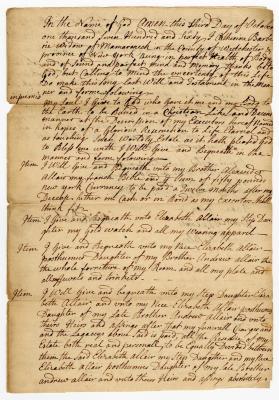 In the Name of God Amen, this third Day of
one thousand seven Hundred and Sixty, I Catherine Barba
rie Widow of Mamaroneck in the County of Westchester
province of New York being in perfect Health of Body
and of Sound and perfect mind and Memory thanks be to
God and Calling to Mind the uncertenty of this Life
Do make this my Last Will and Testament in the Man
ner and form folowing
my Soul I give to God who gave it me and my body to
the Earth to be decined in a Christian Like and Decent
manner at the Discression of my Executor
in hopes of a Glorious Resurrection to Life Eternal and
as touching Such Worldly State as it hath pleased God
to bless me with I Will Give and Bequeath in the
manner and form folowing
Item I Will Give and Bequeath unto my Brother Alexander
Allair my french Bible and the Sum of forty pounds
new york Currency to be paid a twelve Months after my
Decease Either in Cash or in bond as my Executor
Item I Give and bequeath unto Elizabeth Allair my Step Dau
ter my gold watch and all my Waring apparel
Item I Give and bequeath unto my Nice Elizabeth Allair
posthumus Daughter of my Brother Andrew Allair the
the whole furniture of my Room and all my plate and
Item I Will Give and bequeath unto my Step Daughter Eliza
beth Allair and unto my Nice Elizabeth Allair posthumus
Daughter of my Late Brother Andrew Allair and unto
their Heirs and assings after that my funerall Charges and
and the Legacys above said is paid all the Residue of my
Estate both real and personal to be Equally Devided between
them the said Elizabeth Allair my Step Daughter and my Nice
Elizabeth Allair posthumus Daughter of my late Brother
andrew Allair and unto their Heirs and assings